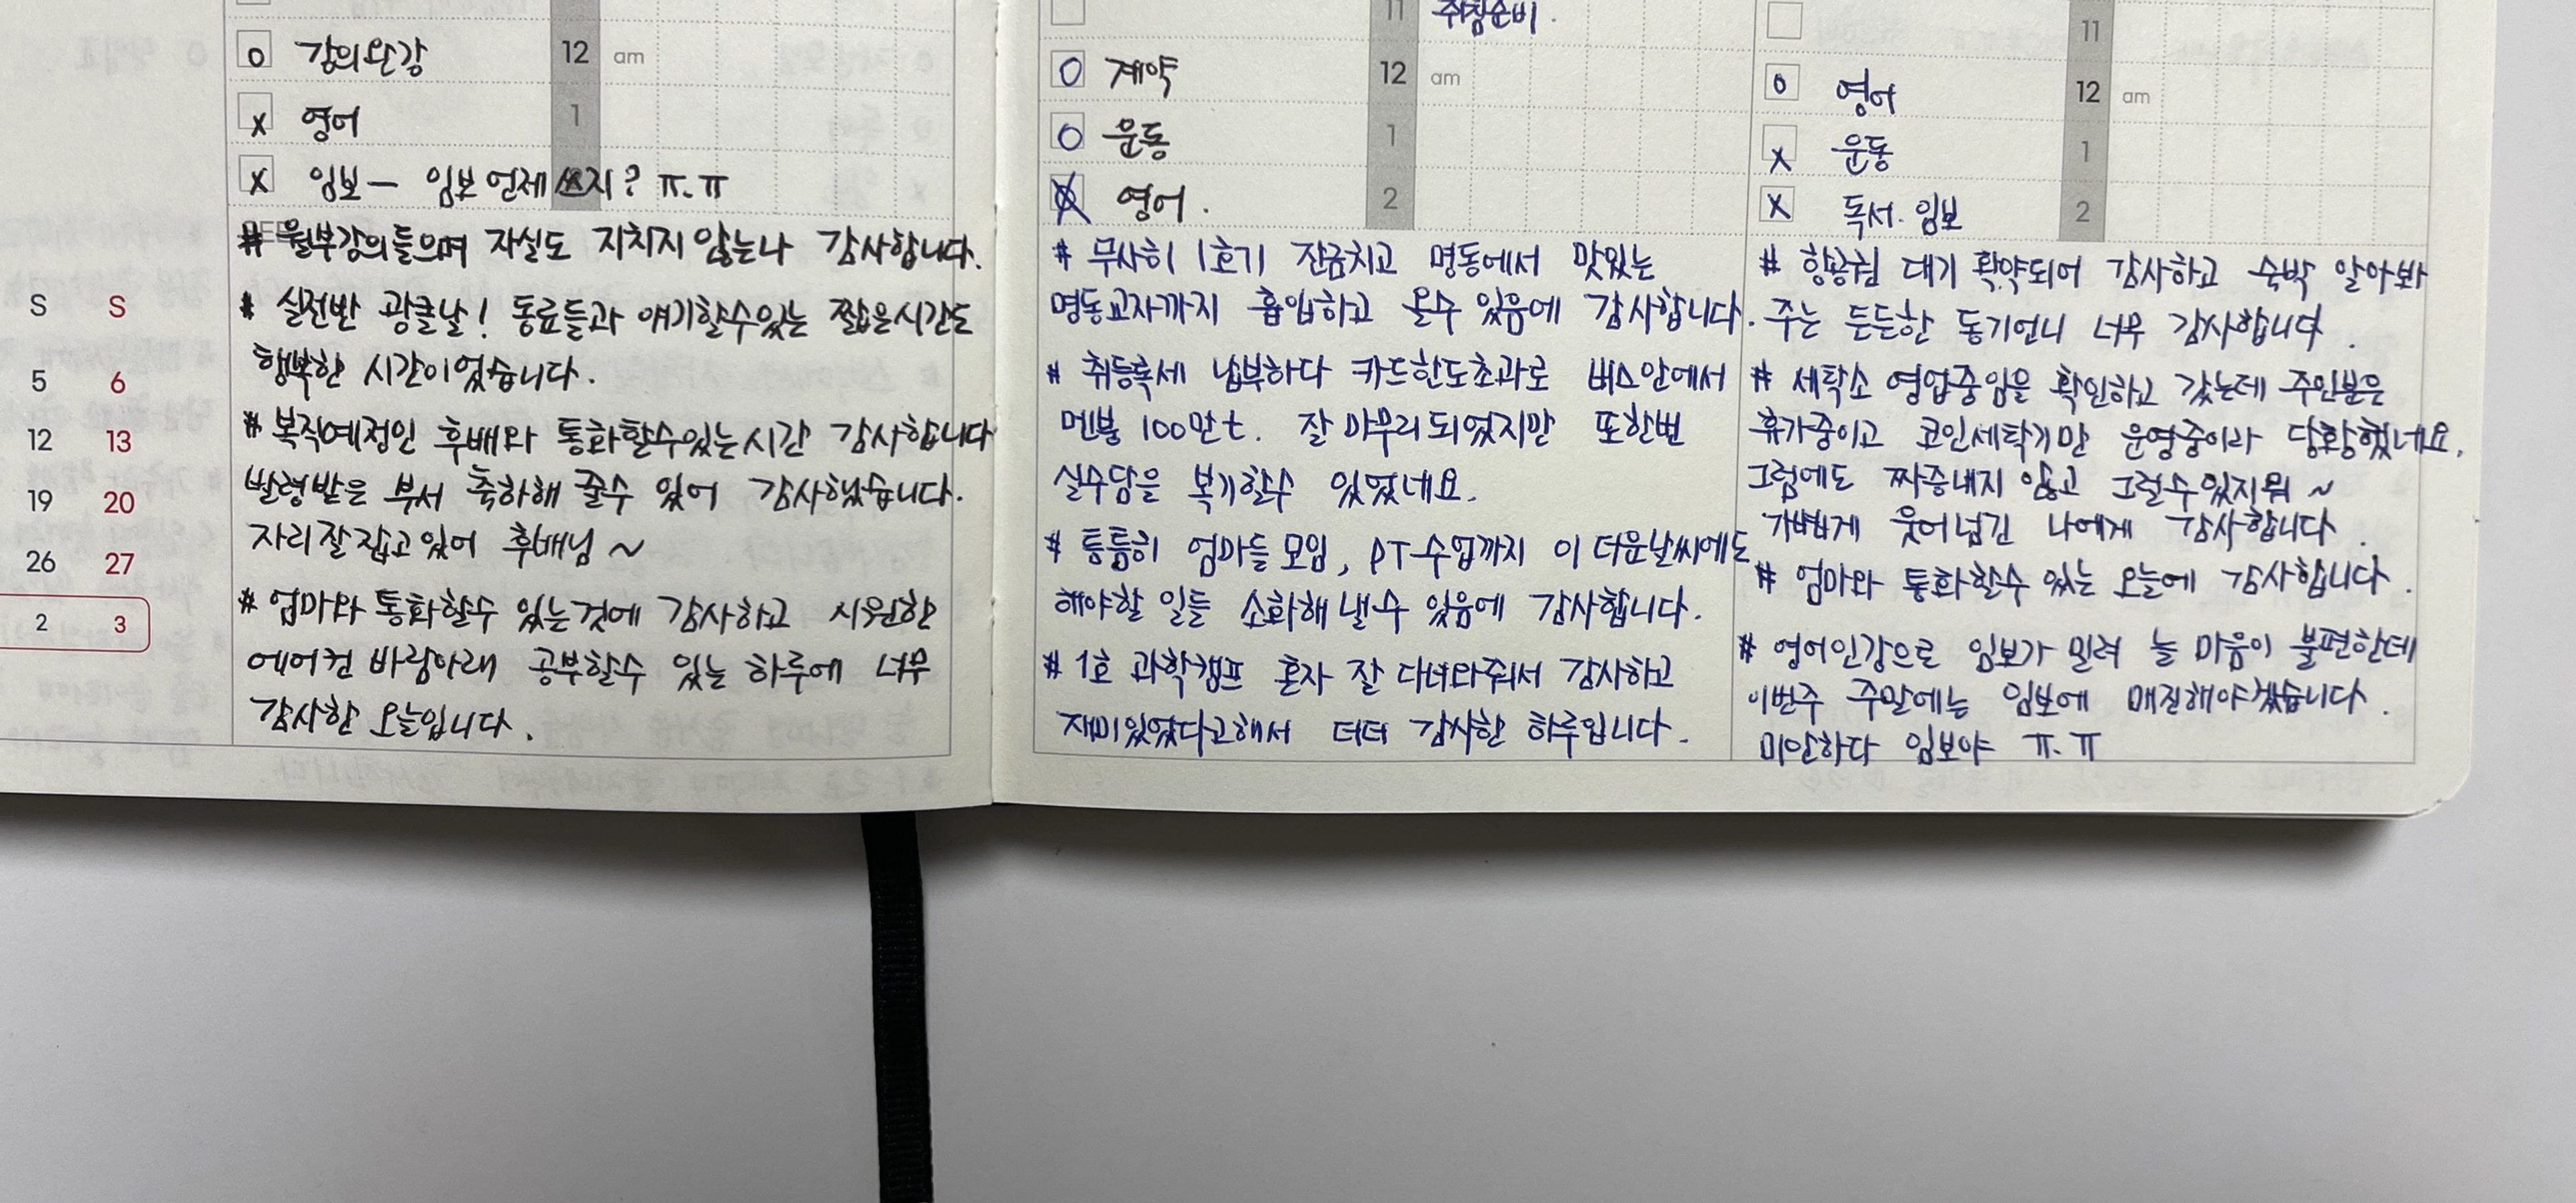 S S
5 6
12 13
19 20
26 27
2 3
o 강의완강 12 am
x 영어 1
x 임보 — 임보 언제 쓰지? ㅠ.ㅠ
# 월부강의들으며 자실도 지치지 않는나 감사합니다.
# 실전반 광클날! 동료들과 얘기할수있는 짧은시간도
행복한 시간이었습니다.
# 복직예정인 후배와 통화할수있는시간 감사합니다
발령받은 부서 축하해 줄수 있어 감사했습니다.
자리잘잡고있어 후배님 ~
# 엄마와 통화할수 있는것에 감사하고 시원한
에어컨 바람아래 공부할수 있는 하루에 너무
감사한 오늘입니다.
11 취침준비.
O 계약 12 am
O 운동 1
영어. 2
# 무사히 1호기 잔금치고 명동에서 맛있는
명동교자까지 흡입하고 올수 있음에 감사합니다.
# 취등록세 납부하다 카드한도초과로 버스안에서
멘붕 100만t. 잘 마무리되었지만 또한번
실수담을 복기할수 있었네요.
# 틈틈히 엄마들모임, PT수업까지 이 더운날씨에도
해야할 일들 소화해 낼수 있음에 감사합니다.
# 1호 과학캠프 혼자 잘 다녀와줘서 감사하고
재미있었다고해서 더더 감사한 하루입니다.
11
o 영어 12 am
x 운동 1
x 독서. 임보 2
# 항공권 대기 확약되어 감사하고 숙박 알아봐
주는 든든한 동기언니 너무 감사합니다.
# 세탁소 영업중임을 확인하고 갔는데 주인분은
휴가중이고 코인세탁기만 운영중이라 당황했네요.
그럼에도 짜증내지 않고 그럴수있지뭐 ~
가볍게 웃어넘긴 나에게 감사합니다.
# 엄마와 통화할수 있는 오늘에 감사합니다.
# 영어인강으로 임보가 밀려 늘 마음이 불편한데
이번주 주말에는 임보에 매진해야겠습니다.
미안하다 임보야 ㅠ.ㅠ